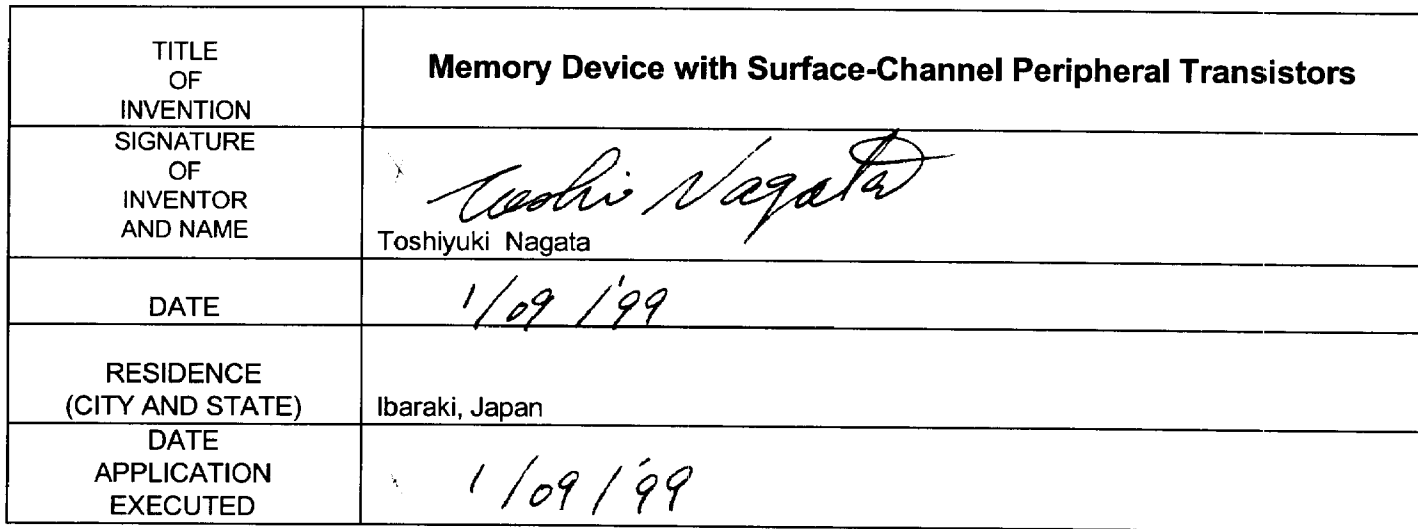 TITLE
OF
INVENTION
Memory Device with Surface-Channel Peripheral Transistors
SIGNATURE
OF
INVENTOR
AND NAME
Toshi Nagata
Toshiyuki Nagata
DATE
1/09/'99
RESIDENCE
(CITY AND STATE)
Ibaraki, Japan
DATE
APPLICATION
EXECUTED
1/09/'99